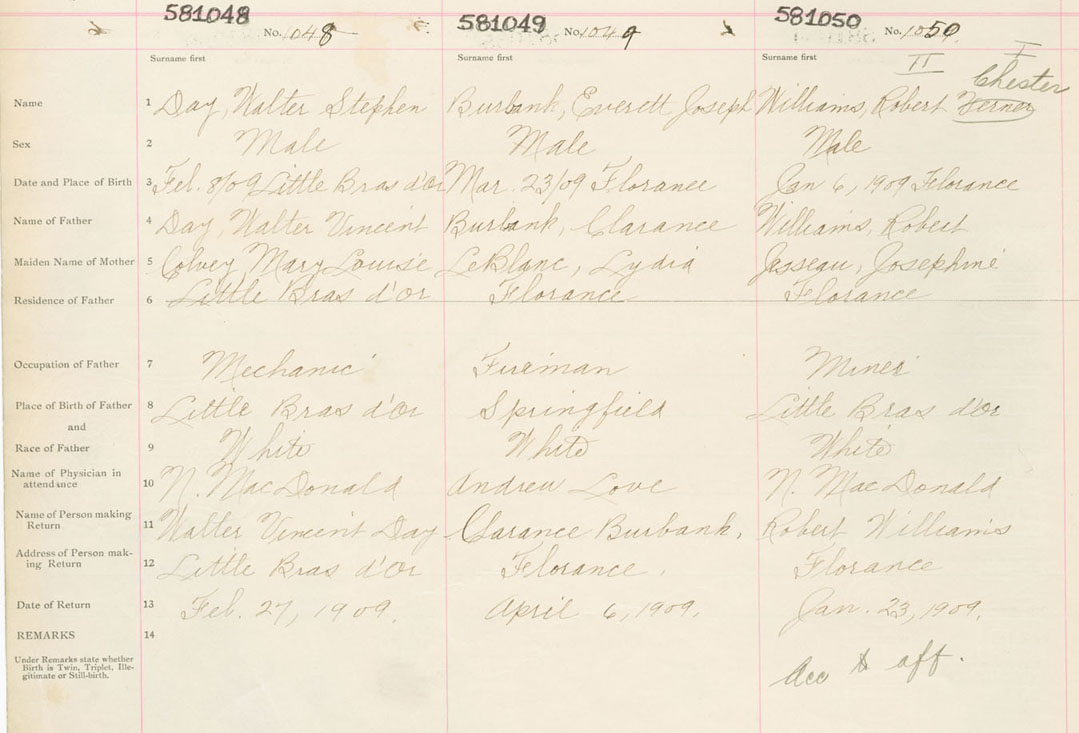 581048 581049 581050
No. 1048 No. 1049 No. 1050
Surname first Surname first Surname first II I
Chester
Name 1 Day, Walter Stephen Burbank, Everett Joseph Williams, Robert Verner
Sex 2 Male Male Male
Date and Place of Birth 3 Feb. 8/09 Little Bras d'Or Mar. 23/09 Florance Jan 6, 1909 Florance
Name of Father 4 Day, Walter Vincent Burbank, Clarance Williams, Robert
Maiden Name of Mother 5 Covey, Mary Louise LeBlanc, Lydia Jesseau, Josephine
Residence of Father 6 Little Bras d'Or Florance Florance
Occupation of Father 7 Mechanic Fireman Miner
Place of Birth of Father 8 Little Bras d'Or Springfield Little Bras d'Or
and
Race of Father 9 White White White
Name of Physician in
attendance 10 N. MacDonald Andrew Love N. MacDonald
Name of Person making
Return 11 Walter Vincent Day Clarance Burbank, Robert Williams
Address of Person mak-
ing Return 12 Little Bras d'Or Florance. Florance
Date of Return 13 Feb. 27, 1909. April 6, 1909. Jan. 23, 1909.
REMARKS 14
Under Remarks state whether
Birth is Twin, Triplet, Ille-
gitimate or Still-birth.
Acc to aff.